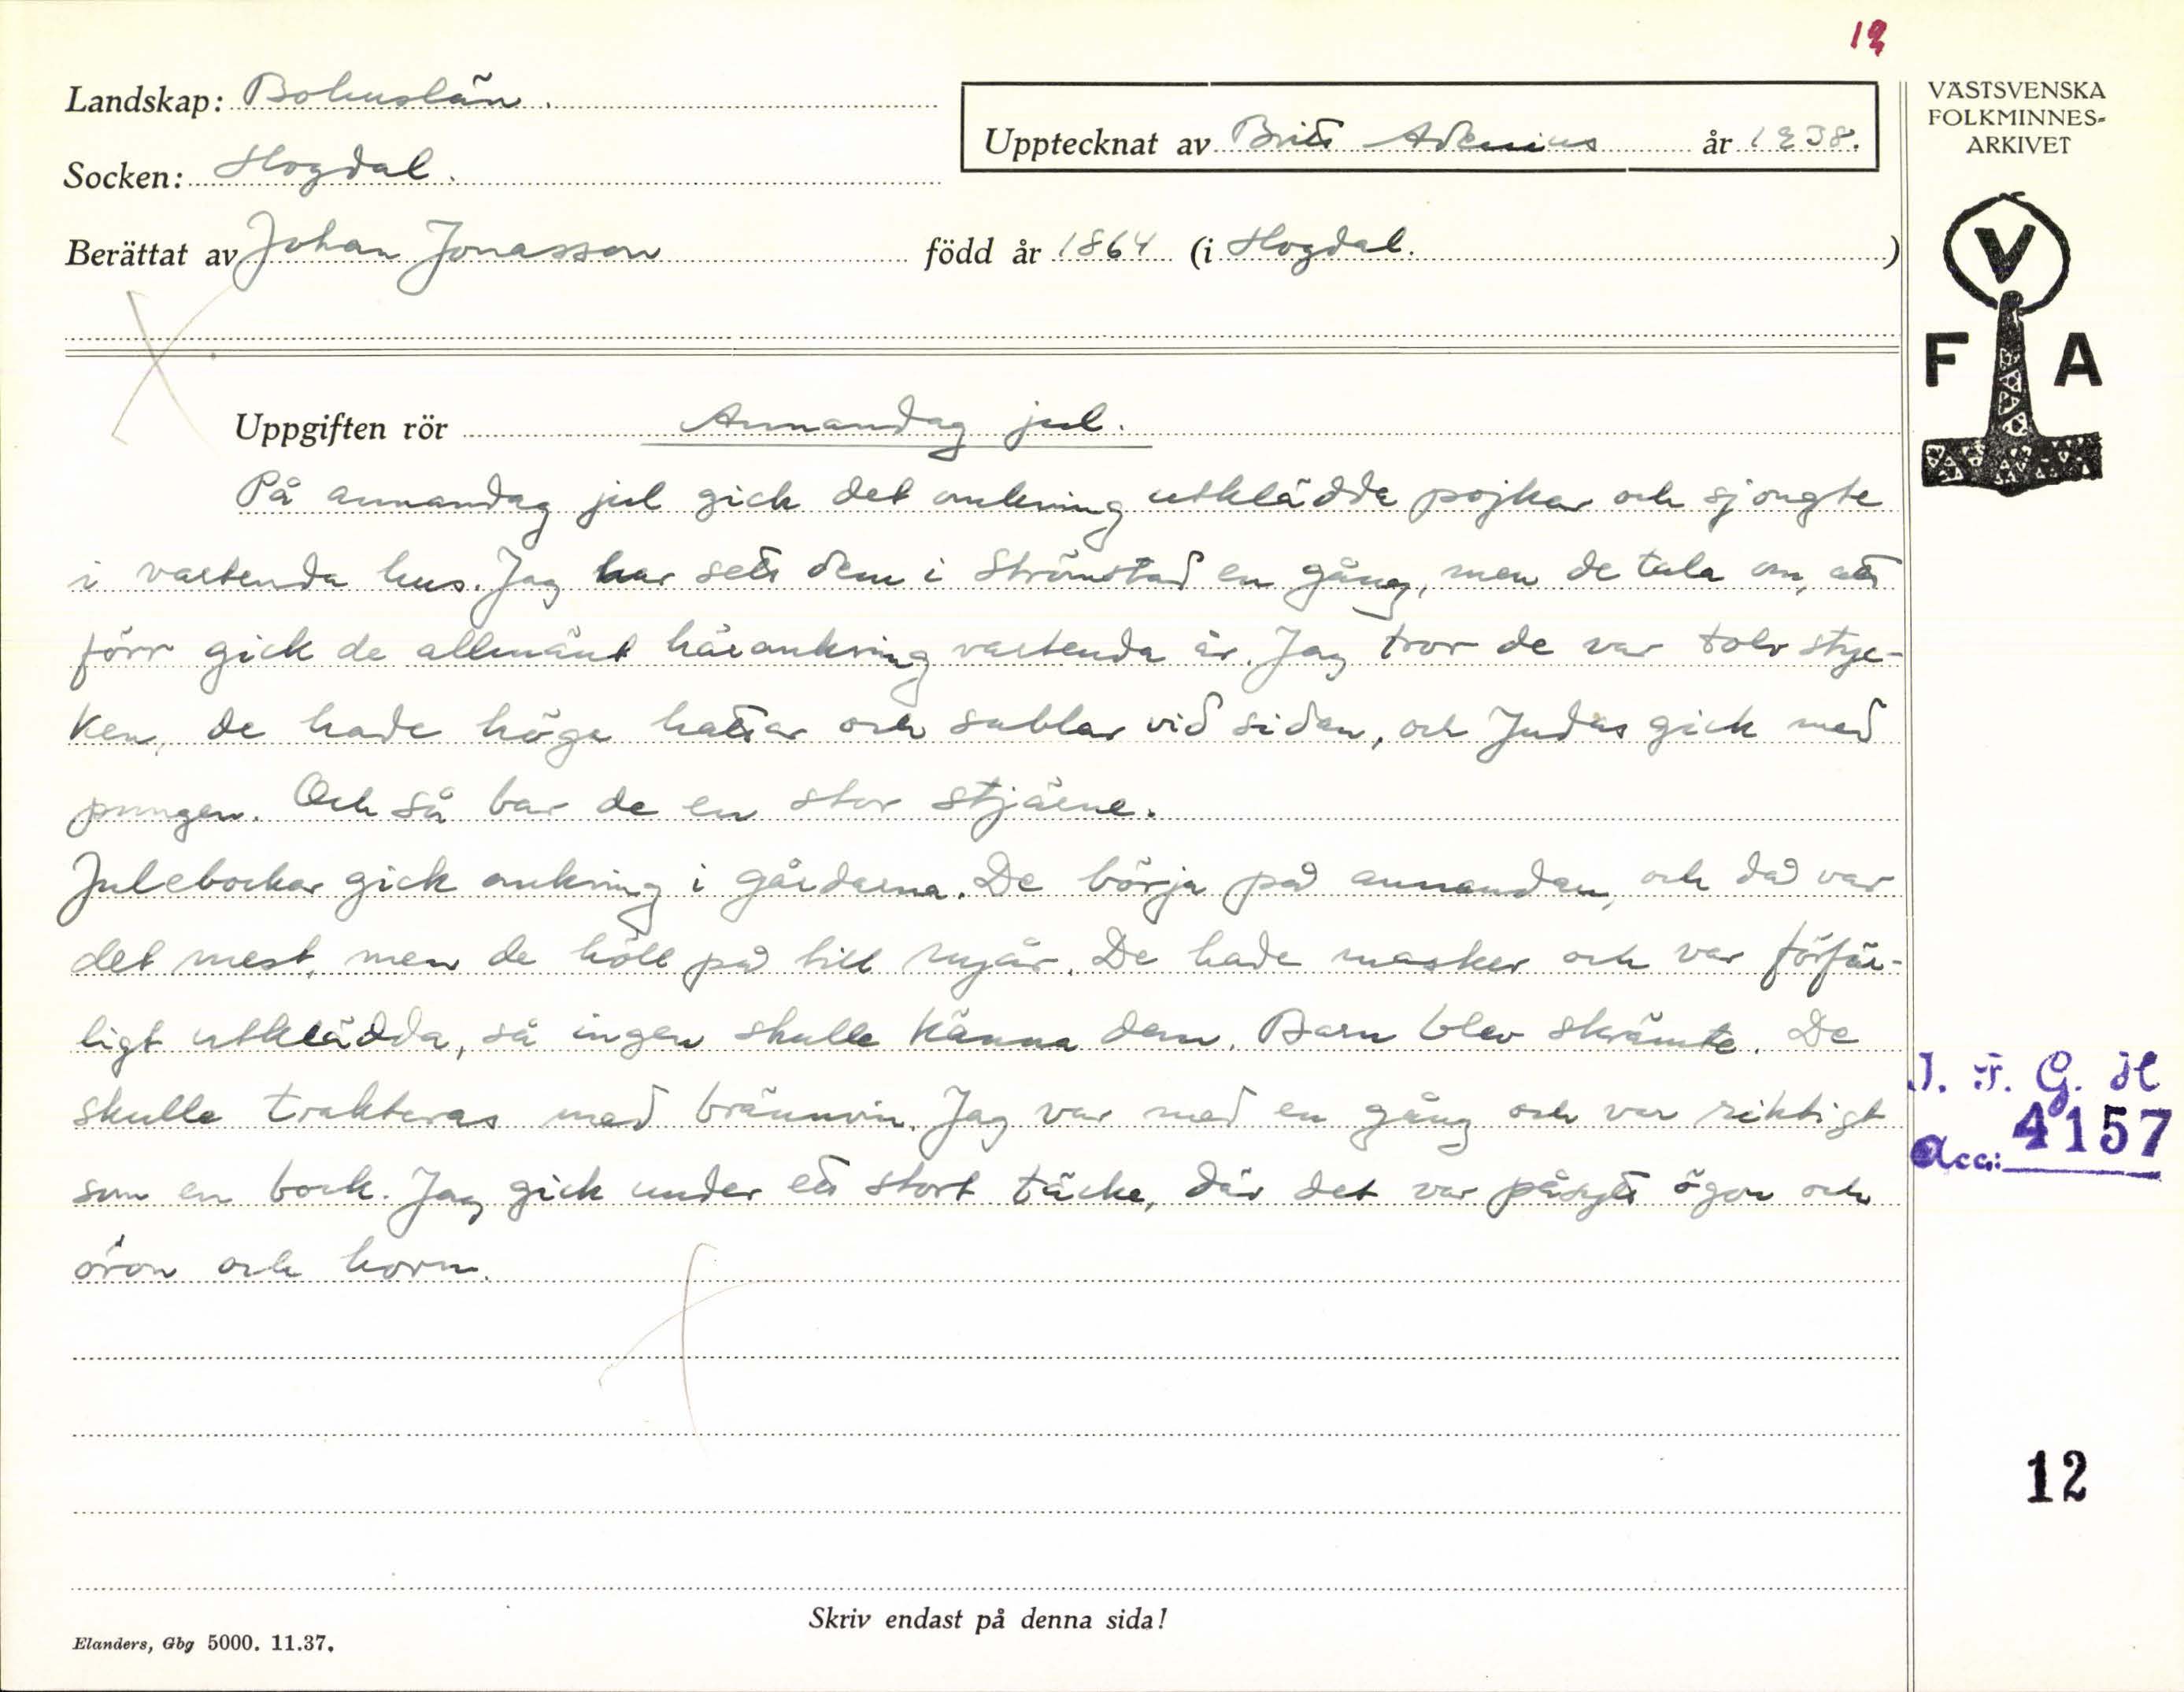 12
Landskap: Bohuslän.
Upptecknat av Britt Adenius år 1938.
Socken: Hogdal.
Berättat av Johan Jonasson född år 1864 (i Hogdal.)
VÄSTSVENSKA
FOLKMINNES-
ARKIVET
V
F A
Uppgiften rör Annandag jul.
På annandag jul gick det omkring utklädda pojkar och sjongte
i vartenda hus. Jag har sett dem i Strömstad en gång, men de tala om, att
förr gick de allmänt häromkring vartenda år. Jag tror de var tolv styc-
ken, de hade höga hattar och sablar vid sidan, och Judas gick med
pungen. Och så bar de en stor stjärne.
Julebockar gick omkring i gårdarna. De börja på annandan, och då var
det mest, men de höll på till nyår. De hade masker och var förfär-
ligt utklädda, så ingen skulle känna dem. Barn blev skrämte. De
skulle trakteras med brännvin. Jag var med en gång och var riktigt
som en bock. Jag gick under ett stort täcke, där det var påsytt ögon och
öron och horn.
I. F. G. H
Acc: 4157
12
Skriv endast på denna sida!
Elanders, Gbg 5000. 11.37.